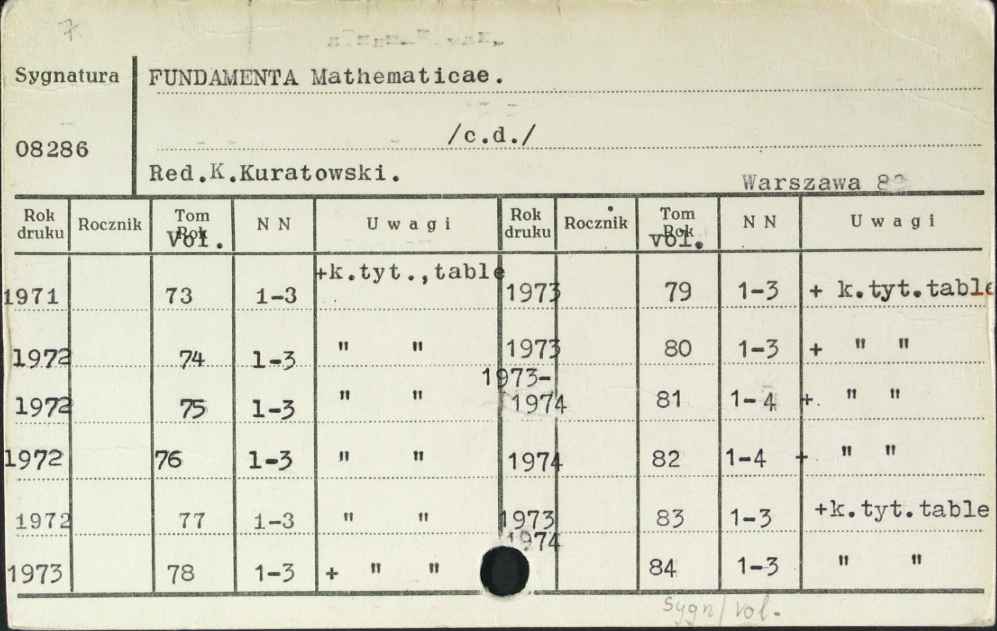 7
Sygnatura FUNDAMENTA Mathematicae.
/c.d./
08286
Red.K.Kuratowski.
Warszawa
Rok druku Rocznik Tom Rok Vol. N N Uwagi Rok druku Rocznik Tom Rok vol. N N Uwagi
1971 73 1-3 +k.tyt.,table 1973 79 1-3 + k.tyt.table
1972 74 1-3 " " 1973 80 1-3 + " "
1972 75 1-3 " " 1973-1974 81 1-4 +. " "
1972 76 1-3 " " 1974 82 1-4 + " "
1972 77 1-3 " " 1973 83 1-3 +k.tyt.table
1973 78 1-3 + " " 1974 84 1-3 " "
sygn/vol.